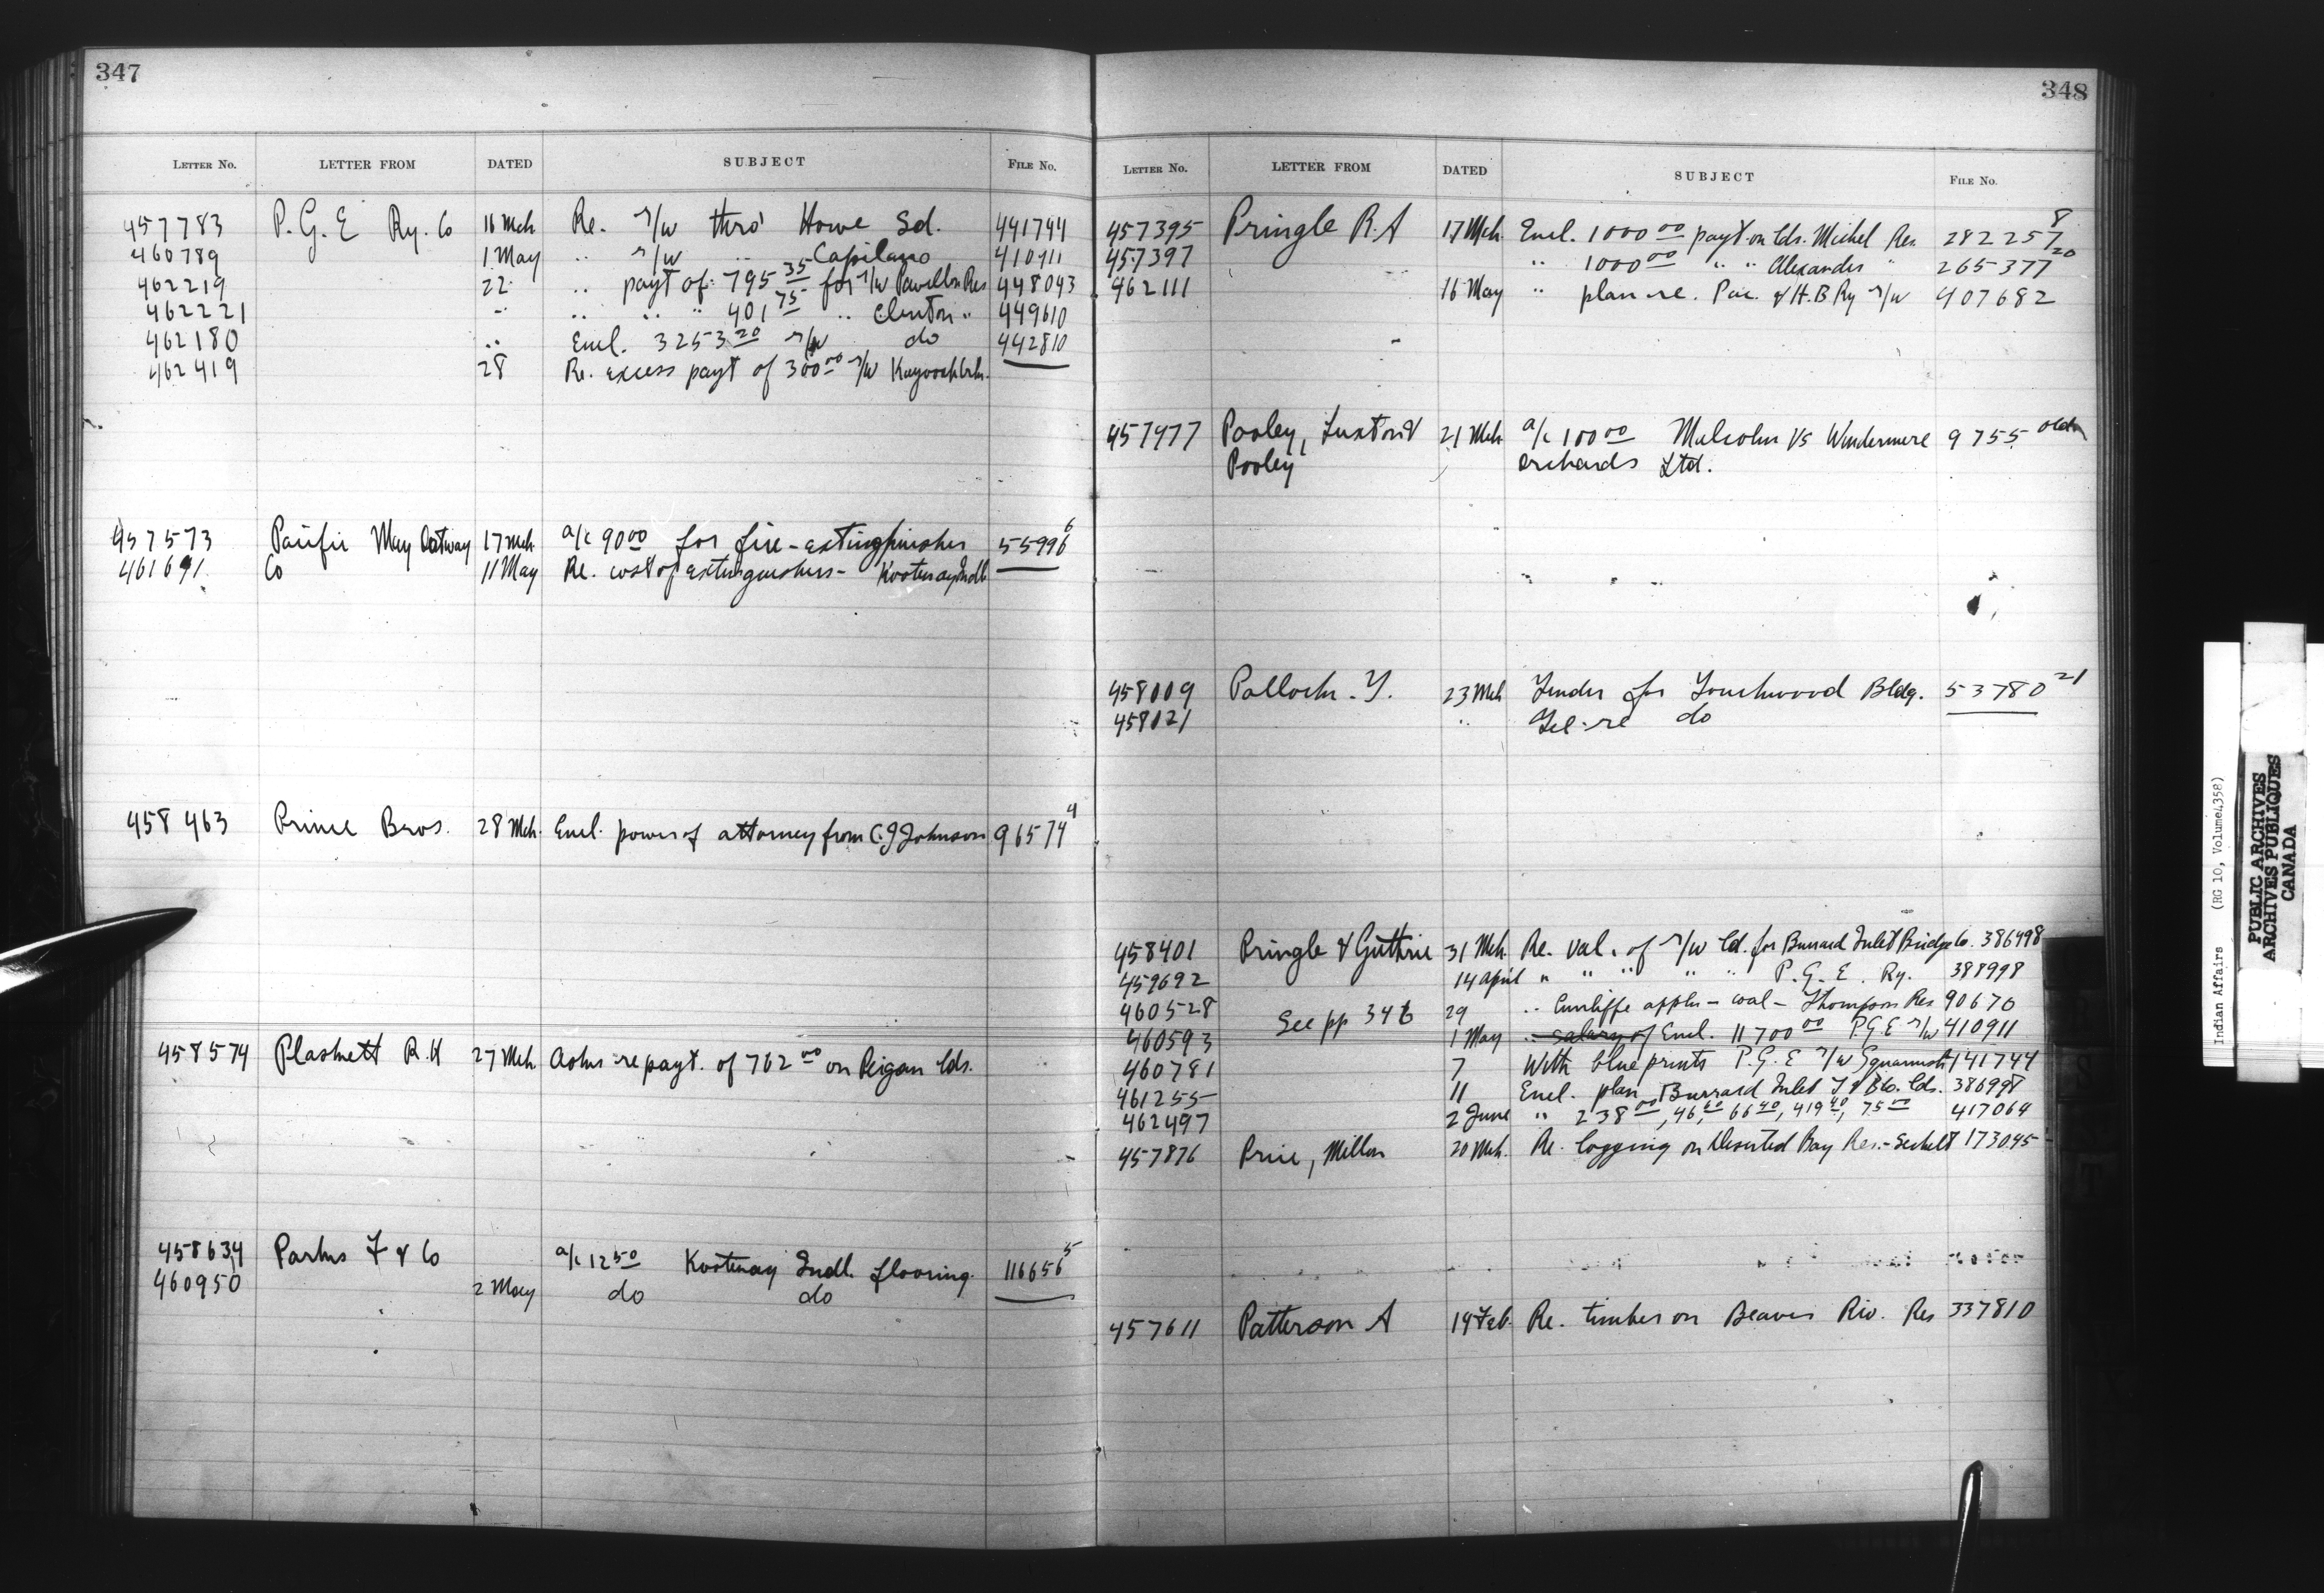 347
LETTER NO. LETTER FROM DATED SUBJECT FILE No.
457783 P. G. E Ry. Co 16 Mch Re. r/w thro' Howe Sd. 441744
460789 1 May " r/w " Capilano 410911
462219 22 " payt of 795 35 for r/w Pavilion Res 448043
462221 " " " " 401 75 " Clinton " 449610
462180 " Encl. 3253 20 r/w do 442810
462419 28 Re. excess payt of 300 00 r/w
457573 Pacific May Oatway 17 Mch a/c 90 00 for fire-extinguisher 55996 6
461691 Co 11 May Re. cost of extinguishers - Kootenay Indl
458463 Prince Bros. 28 Mch. Encl. power of attorney from C. J Johnson 96574 4
458574 R. H 27 Mch Asks re payt. of 762 00 on Peigan lds.
458634 Parks F & Co a/c 12 50 Kootenay Indl. flooring. 116656 5
460950 2 May do do
348
LETTER NO. LETTER FROM DATED SUBJECT FILE No.
457395 Pringle R. A 17 Mch. Encl. 1000 00 payt. on lds. Michel Res. 282257 8
457397 " 1000 00 " " Alexander " 265377 20
462111 16 May " plan re. Pac. & H. B Ry r/w 407682
457477 Pooley, Luxton & 21 Mch a/c 100 00 Malcolm vs Windermere 9755 old
Pooley orchards Ltd.
458009 Pollock. T. 23 Mch Tender for Touchwood Bldg. 53780 21
458021 " Tel. re do
458401 Pringle & Guthrie 31 Mch. Re. val. of r/w ld. for Burrard Inlet Bridge Co. 386998
459692 14 April " " " " " P. G. E. Ry. 388998
460528 See pp 346 29 " Cunliffe appln - coal - Thompson Res 90670
460593 1 May " salary of Encl. 11700 00 P.G.E r/w 410911
460781 7 With blue prints P. G. E r/w Squamish 141744
461255 11 Encl. plan Burrard Inlet T & B Co. lds. 386998
462497 2 June " 238 00, 46 60 66 40, 419 40, 75 00 417064
457876 Price, Milton 20 Mch. Re. logging on Deserted Bay Res. - Sechelt 173045
457611 Patterson A 14 Feb. Re. timber on Beaver Riv. Res 337810
Indian Affairs (RG 10, Volume 4358)
PUBLIC ARCHIVES
ARCHIVES PUBLIQUES
CANADA